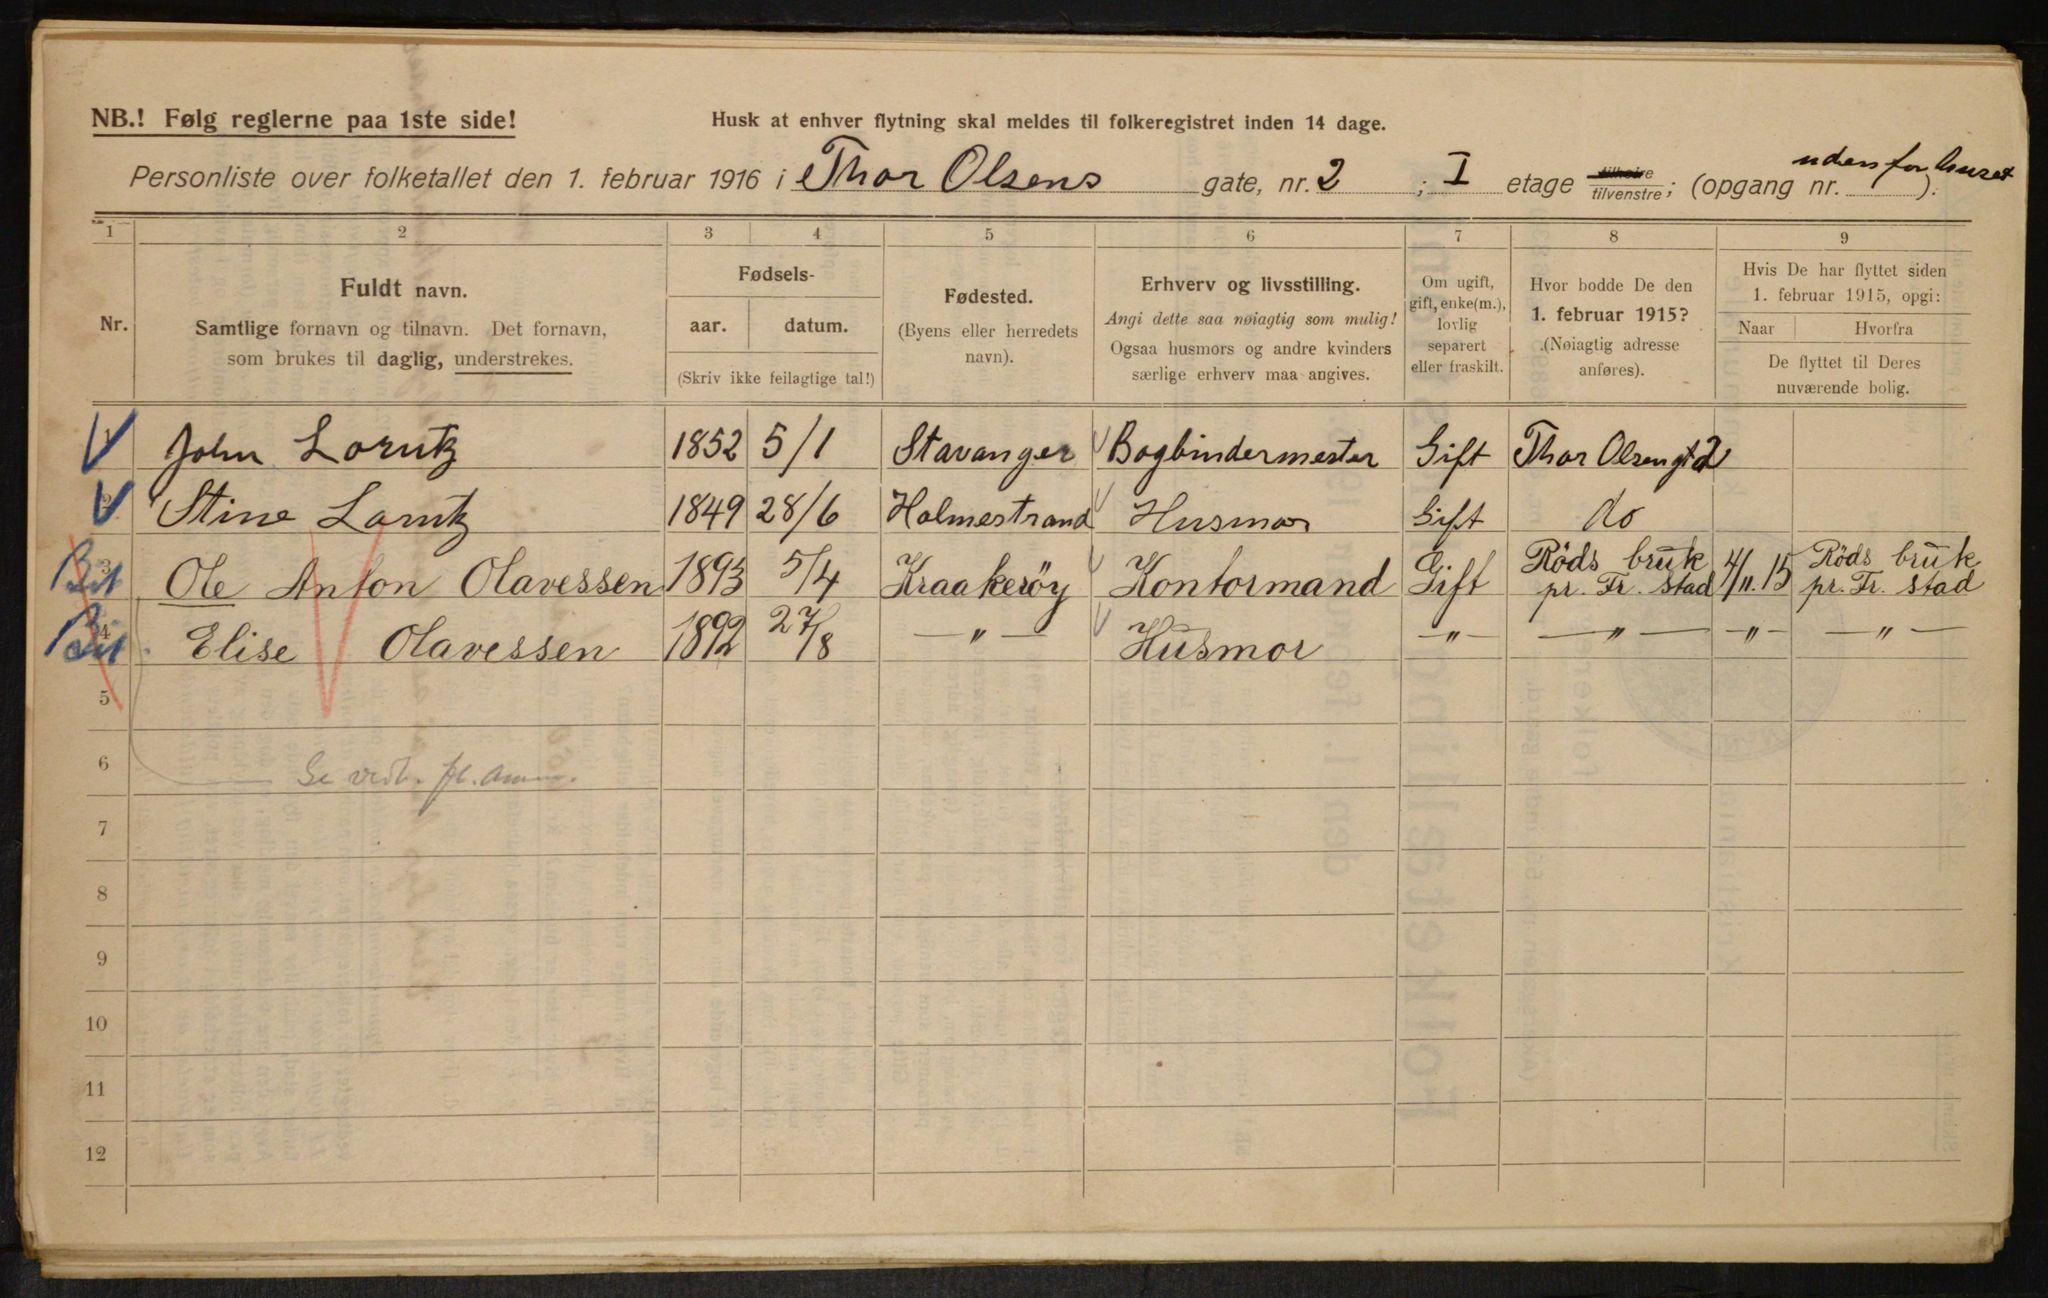 NB.! Følg reglerne paa 1ste side!
Husk at enhver flytning skal meldes til folkeregistret inden 14 dage.
Personliste over folketallet den 1. februar 1916 i Thor Olsens gate, nr. 2 ; I etage tilhøire tilvenstre; (opgang nr. ). udenfor huset
1 2 3 4 5 6 7 8 9
Nr.
Fuldt navn.
Samtlige fornavn og tilnavn. Det fornavn,
som brukes til daglig, understrekes.
Fødsels-
aar. datum.
(Skriv ikke feilagtige tal!)
Fødested.
(Byens eller herredets
navn).
Erhverv og livsstilling.
Angi dette saa nøiagtig som mulig!
Ogsaa husmors og andre kvinders
særlige erhverv maa angives.
Om ugift,
gift, enke(m.),
lovlig
separert
eller fraskilt.
Hvor bodde De den
1. februar 1915?
(Nøiagtig adresse
anføres).
Hvis De har flyttet siden
1. februar 1915, opgi:
Naar Hvorfra
De flyttet til Deres
nuværende bolig.
1 John Lorntz 1852 5/1 Stavanger Bogbindermester Gift Thor Olsengt 2
2 Stine Lorntz 1849 28/6 Holmestrand Husmor Gift do
3 Ole Anton Olavessen 1893 5/4 Kraakerøy Kontormand Gift Røds bruk pr. Fr. stad 4/11. 15 Røds bruk pr. Fr. stad
4 Elise Olavessen 1892 27/8 — " — Husmor — " — — " — — " — — " —
5
6
Se vedl.
7
8
9
10
11
12